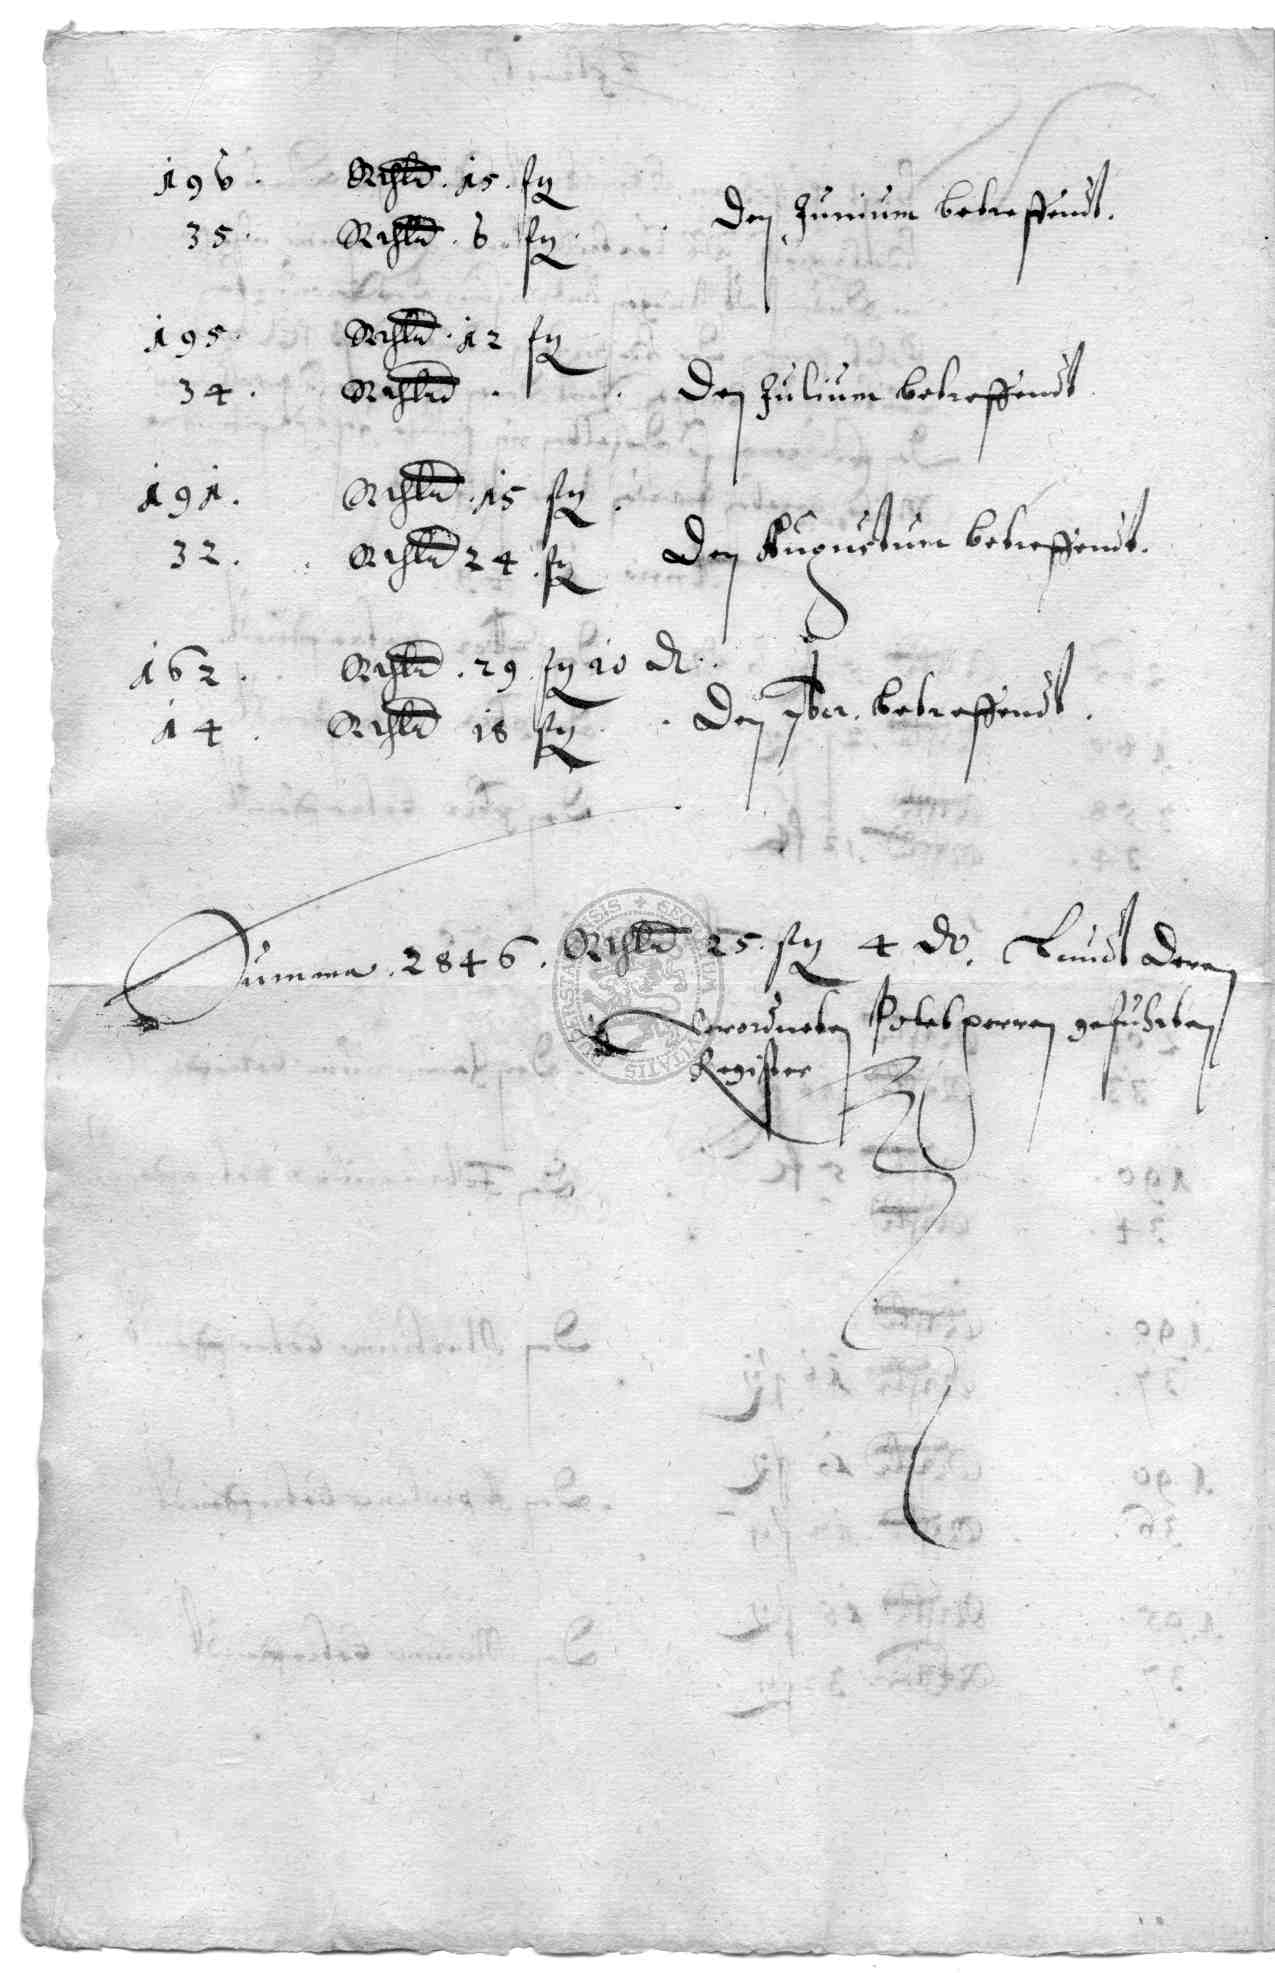 196. Rthlr. 15. sg
35. Rthlr. 6 sg. Den Junium betreffendt.
195. Rthlr. 12 sg
34. Rthlr. Den Julium betreffendt
191. Rthlr. 15 sg.
32. Rthlr 24 sg Den Augustum betreffendt.
162. Rthlr. 29. sg 10 d.
14. Rthlr 18 sg. Den 7ber. betreffendt.
Summa. 2846. Rthlr 25. sg 4 d. Laudt deren
verordneten gefuhrten
Register